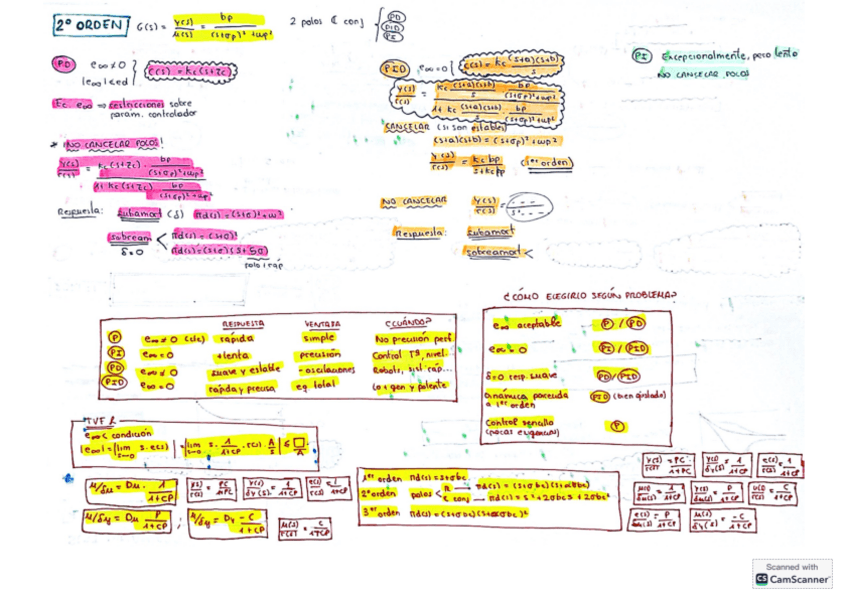 2º ORDEN
G(s) = y(s)/u(s) = bp/((s+σp)²+ωp²)
2 polos ℂ conj { PD PID PI
PD e∞ ≠ 0 |e∞| < ed } C(s) = kc(s+zc)
Ec. e∞ ⇒ restricciones sobre
param. controlador
* ¡NO CANCELAR POLOS!
y(s)/r(s) = kc(s+zc) · bp/((s+σp)²+ωp²) / 1+kc(s+zc) bp/((s+σp)²+ωp²)
Respuesta: subamort (δ) πd(s) = (s+σ)²+ω²
sobream < πd(s) = (s+σ)²
δ=0 πd(s) = (s+σ)(s+5σ)
polo ráp
PID e∞ = 0 { C(s) = kc (s+a)(s+b)/s
y(s)/r(s) = kc (s+a)(s+b)/s · bp/((s+σp)²+ωp²) / 1+kc (s+a)(s+b)/s · bp/((s+σp)²+ωp²)
CANCELAR (si son estables)
(s+a)(s+b) = (s+σp)²+ωp²
y(s)/r(s) = kc bp/(s+kc bp) (1er orden)
NO CANCELAR y(s)/r(s) = ---/s³...
Respuesta: subamort
sobreamort <
PI Excepcionalmente, pero lento
NO CANCELAR POLOS
RESPUESTA VENTAJA ¿CUÁNDO?
P e∞ ≠ 0 (cte) rápida simple No precisión perf.
PI e∞ = 0 +lenta precisión Control Tª, nivel
PD e∞ ≠ 0 suave y estable - oscilaciones Robots, sist ráp...
PID e∞ = 0 rápida y precisa eq. total Lo + gen y potente
¿CÓMO ELEGIRLO SEGÚN PROBLEMA?
e∞ aceptable P / PD
e∞ = 0 PI / PID
δ=0 resp. suave PD / PID
Dinámica parecida a 1er orden PID (bien ajustado)
Control sencillo (pocas exigencias) P
TVF
e∞ < condición
|e∞| = |lim s→0 s·e(s)| = |lim s→0 s · 1/(1+CP) · r(s) A/s| ≤ □/A
u/δu = Du · 1/(1+CP)
y(s)/r(s) = PC/(1+PC)
y(s)/dy(s) = 1/(1+CP)
e(s)/r(s) = 1/(1+CP)
u/δu = Du P/(1+CP) ; u/δy = Dy -C/(1+CP)
u(s)/r(s) = C/(1+CP)
1er orden πd(s) = s+σbc
2º orden polos < R → πd(s) = (s+σbc)(s+ασbc)
ℂ conj → πd(s) = s²+2σbc s+2σbc²
3er orden πd(s) = (s+σbc)(s+ασbc)²
y(s)/r(s) = PC/(1+PC)
y(s)/dy(s) = 1/(1+CP)
e(s)/r(s) = 1/(1+CP)
u(s)/du(s) = 1/(1+CP)
y(s)/du(s) = P/(1+CP)
u(s)/r(s) = C/(1+CP)
e(s)/du(s) = P/(1+CP)
u(s)/dy(s) = -C/(1+CP)
Scanned with
CS CamScanner